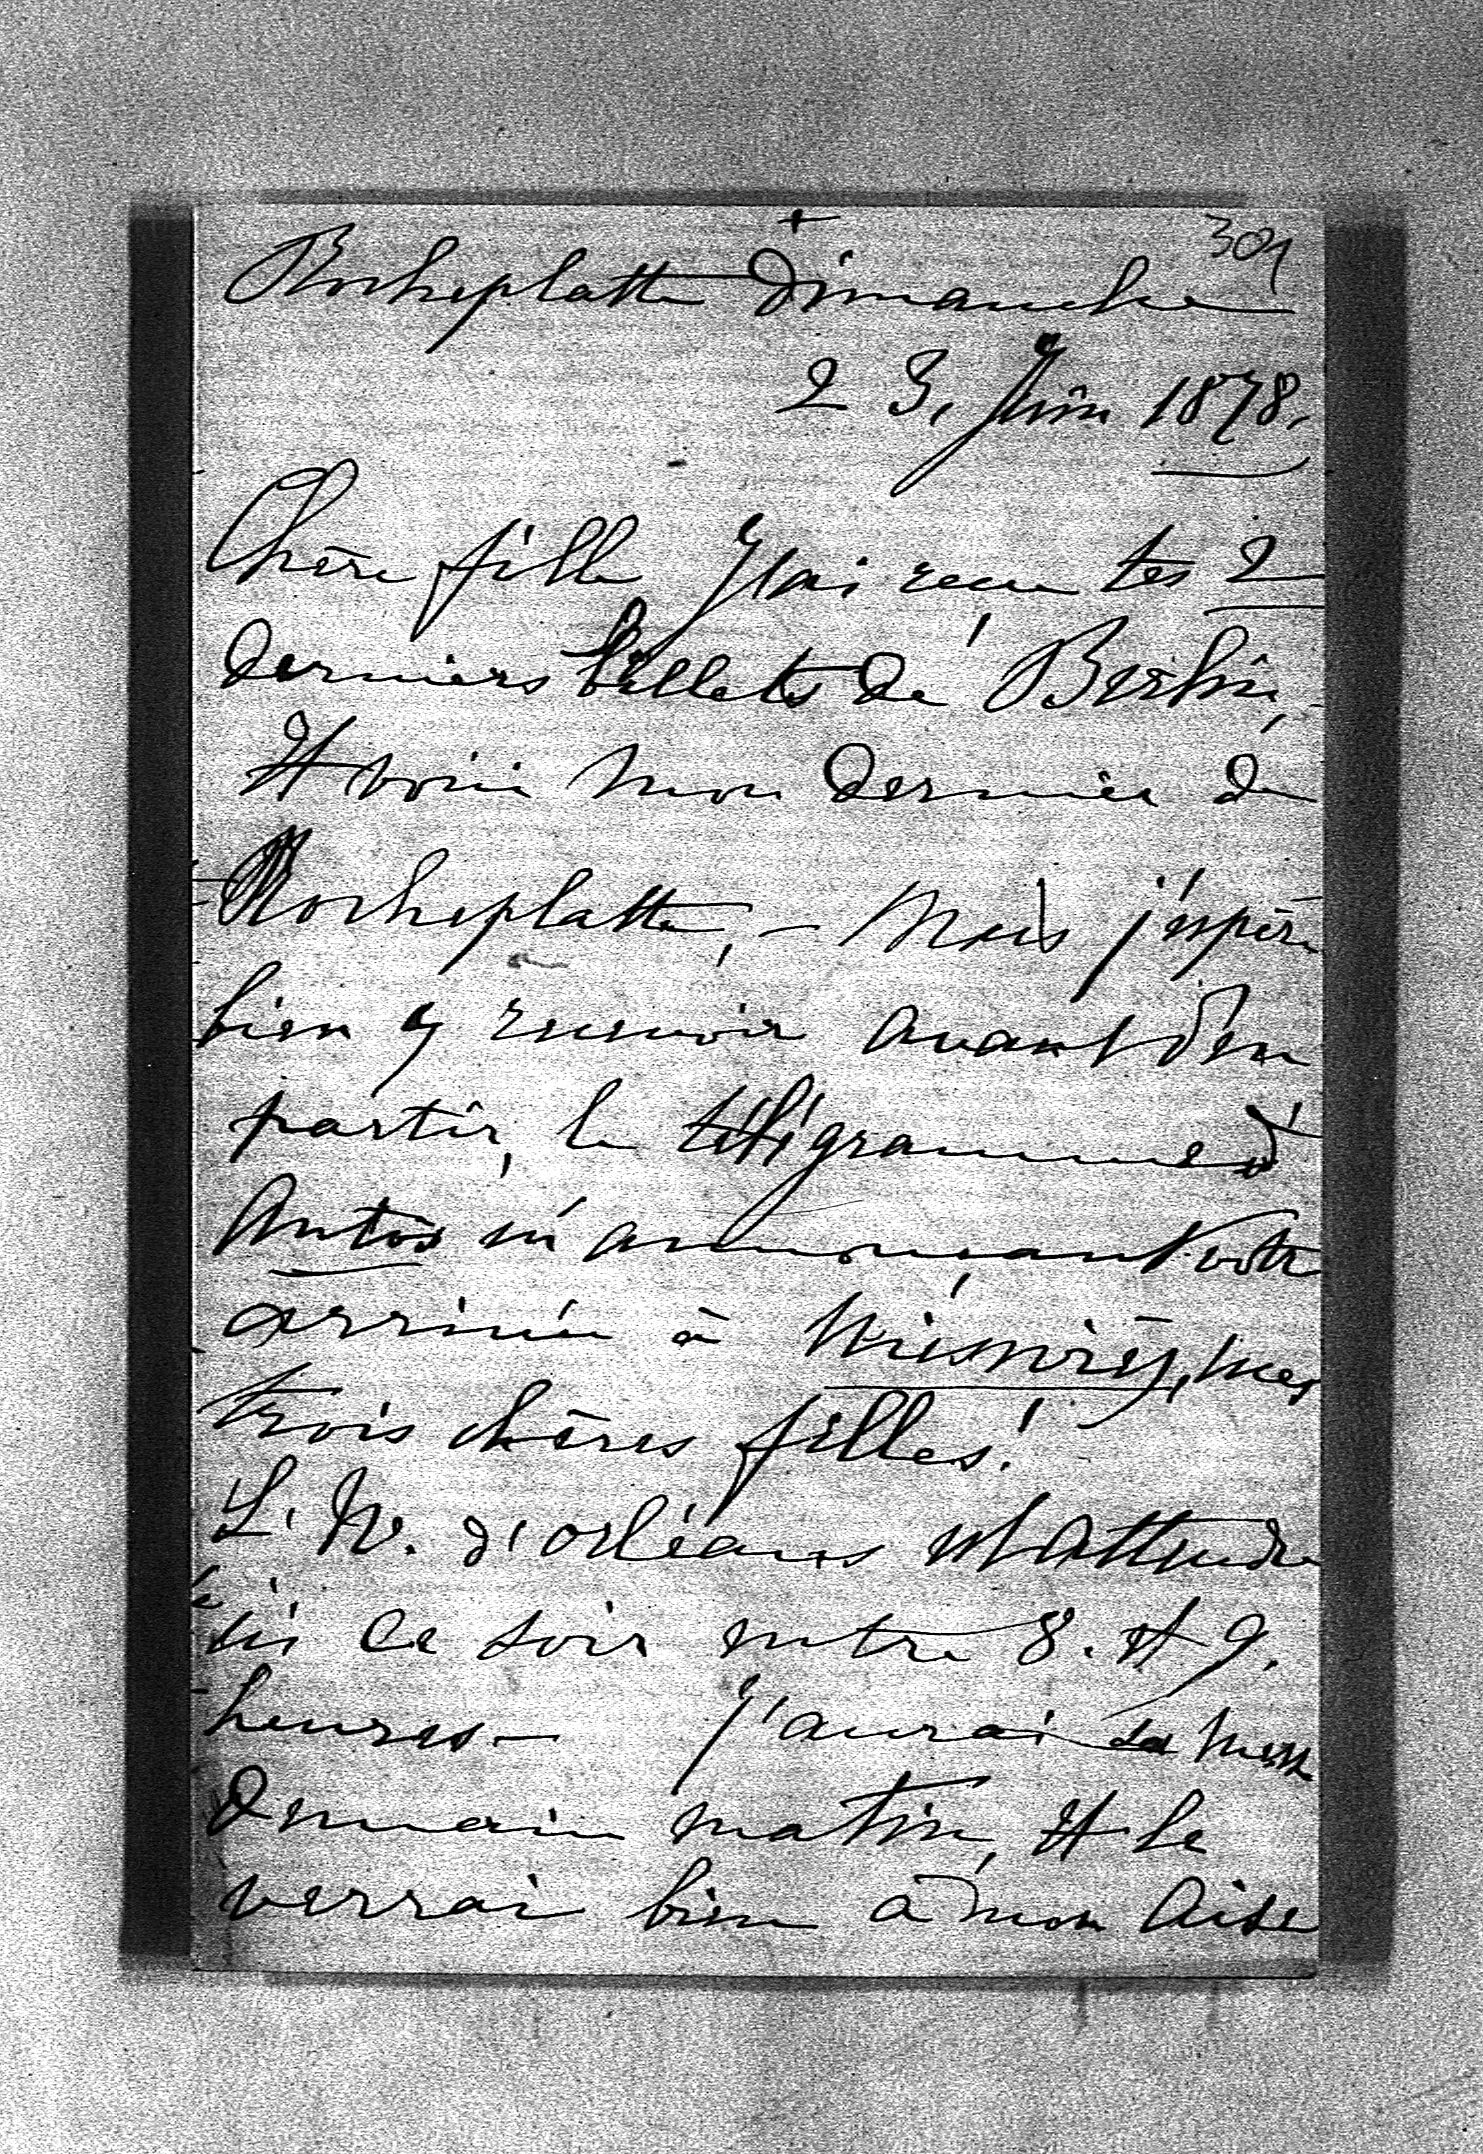 +
304
Rocheplatte Dimanche
23, Juin 1878.
Chère fille J'ai reçu tes 2
derniers billets de Berlin,
Et voici mon dernier de
Rocheplatte, – Mais j'espère
bien y recevoir avant d'en
partir, le télégramme d'
Antos m'annonçant votre
arrivée à Niéswiéz, mes
trois chères filles!
L'. N. d'orléans est attendu
ici ce soir entre 8. et 9.
heures – J'aurai sa messe
demain matin, et le
verrai bien à mon aise